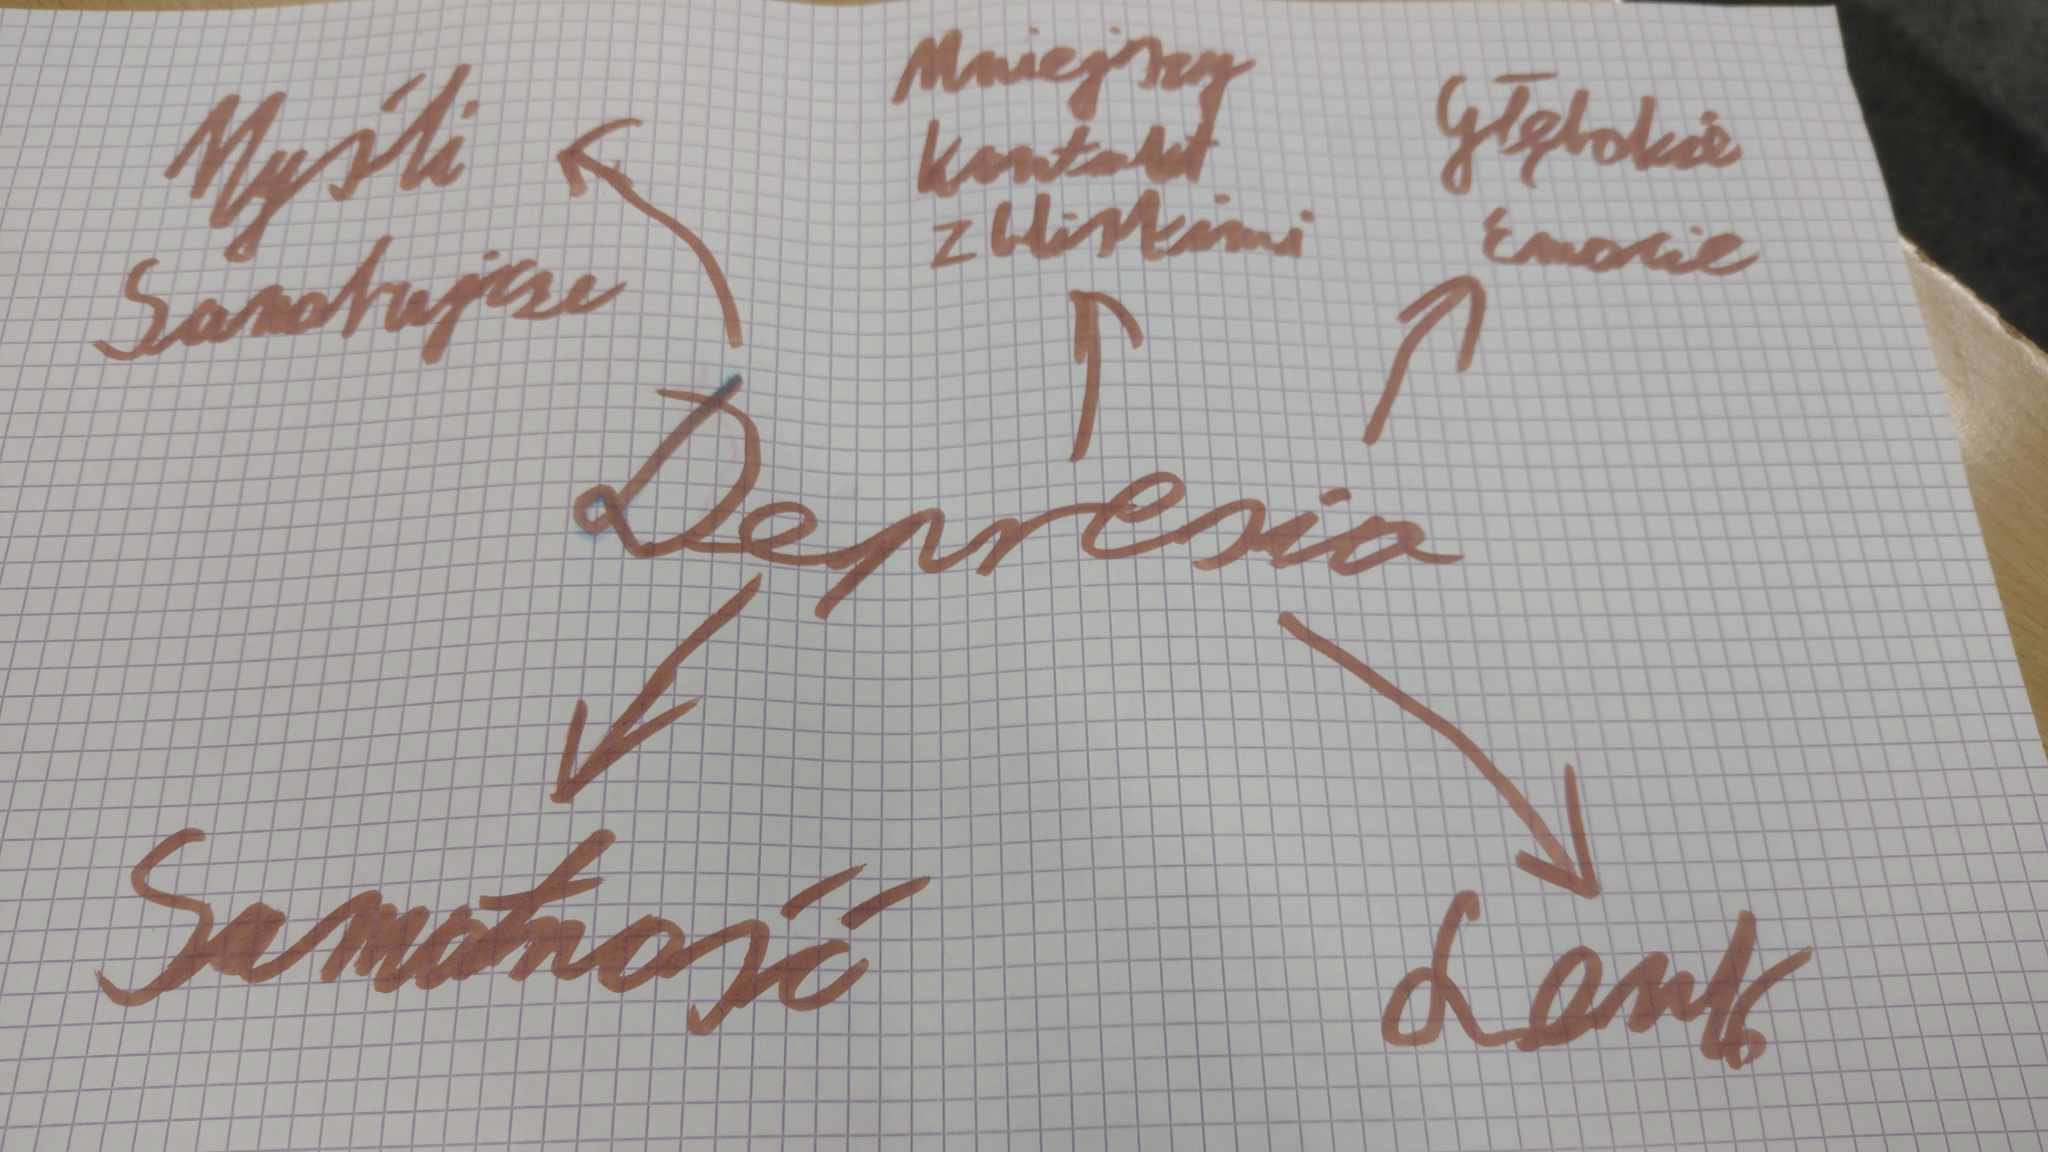 Myśli
Samobujcze
Mniejszy
kontakt
z bliskimi
Głębokie
Emocie
Depresia
Samotność
Lenk